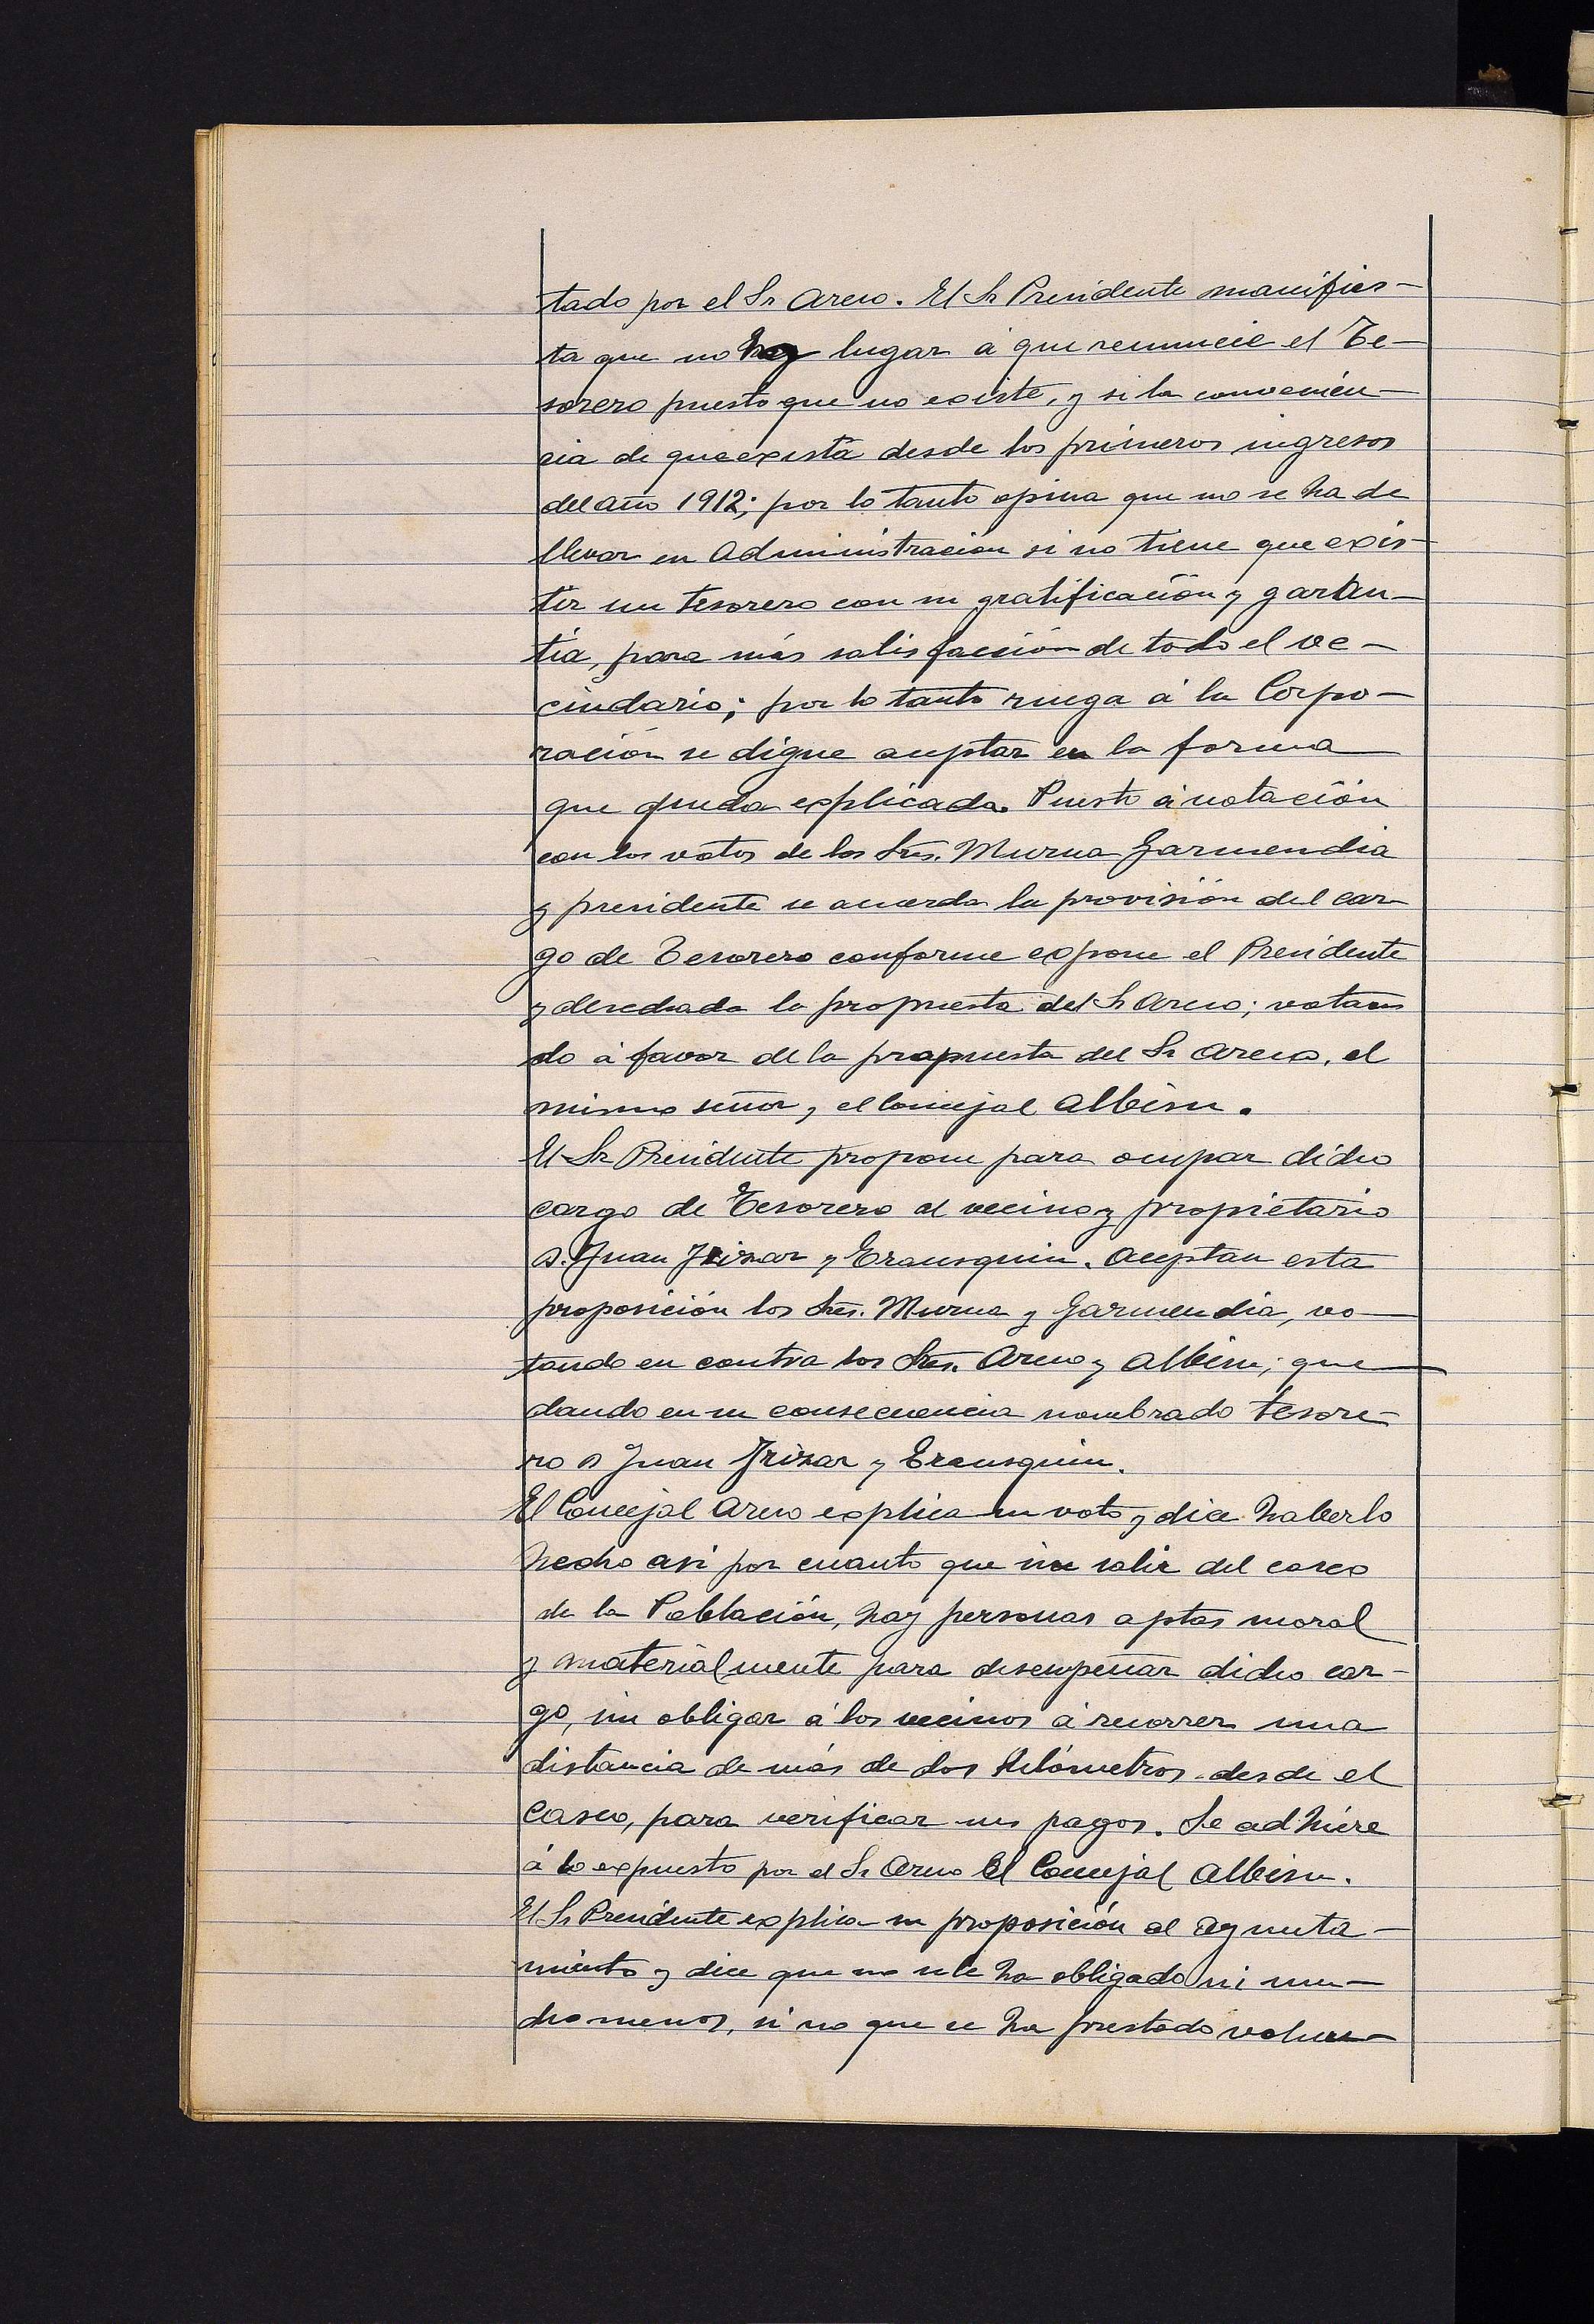 tado por el Sr Areco. El Sr Presidente manifies-
ta que no hay lugar á que renuncie el Te-
sorero puesto que no existe, y si la convenien-
cia de que exista desde los primeros ingresos
del año 1912; por lo tanto opina que no se ha de
llevar en Administración si no tiene que exis-
tir un tesorero con su gratificación y garan-
tía, para más satisfacción de todo el ve-
cindario; por lo tanto ruega á la Corpo-
ración se digne aceptar en la forma
que queda explicada. Puesto á votación
con los votos de los Srs. Murua Garmendia
y presidente se acuerda la provisión del car
go de Tesorero conforme expone el Presidente
y desechada la propuesta del Sr Areco; votan
do á favor de la propuesta del Sr Areco, el
mismo señor, el Concejal Albisu.
El Sr Presidente propone para ocupar dicho
cargo de Tesorero al vecino y propietario
D. Juan Irizar y Erausquin. Aceptan esta
proposición los Srs. Murua y Garmendia, vo-
tando en contra los Srs. Areco y Albisu; que
dando en su consecuencia nombrado tesore-
ro D Juan Irizar y Erausquin.
El Concejal Areco explica su voto y dice haberlo
hecho asi por cuanto que sin salir del casco
de la Población, hay personas aptas moral
y materialmente para desempeñar dicho car-
go, sin obligar á los vecinos á recorrer una
distancia de más de dos kilómetros desde el
Casco, para verificar sus pagos. Se adhiere
á lo expuesto por el Sr Areco El Concejal Albisu.
El Sr Presidente explica su proposición al Ayunta-
miento y dice que no se le ha obligado ni mu-
cho menos, si no que se ha prestado volun-